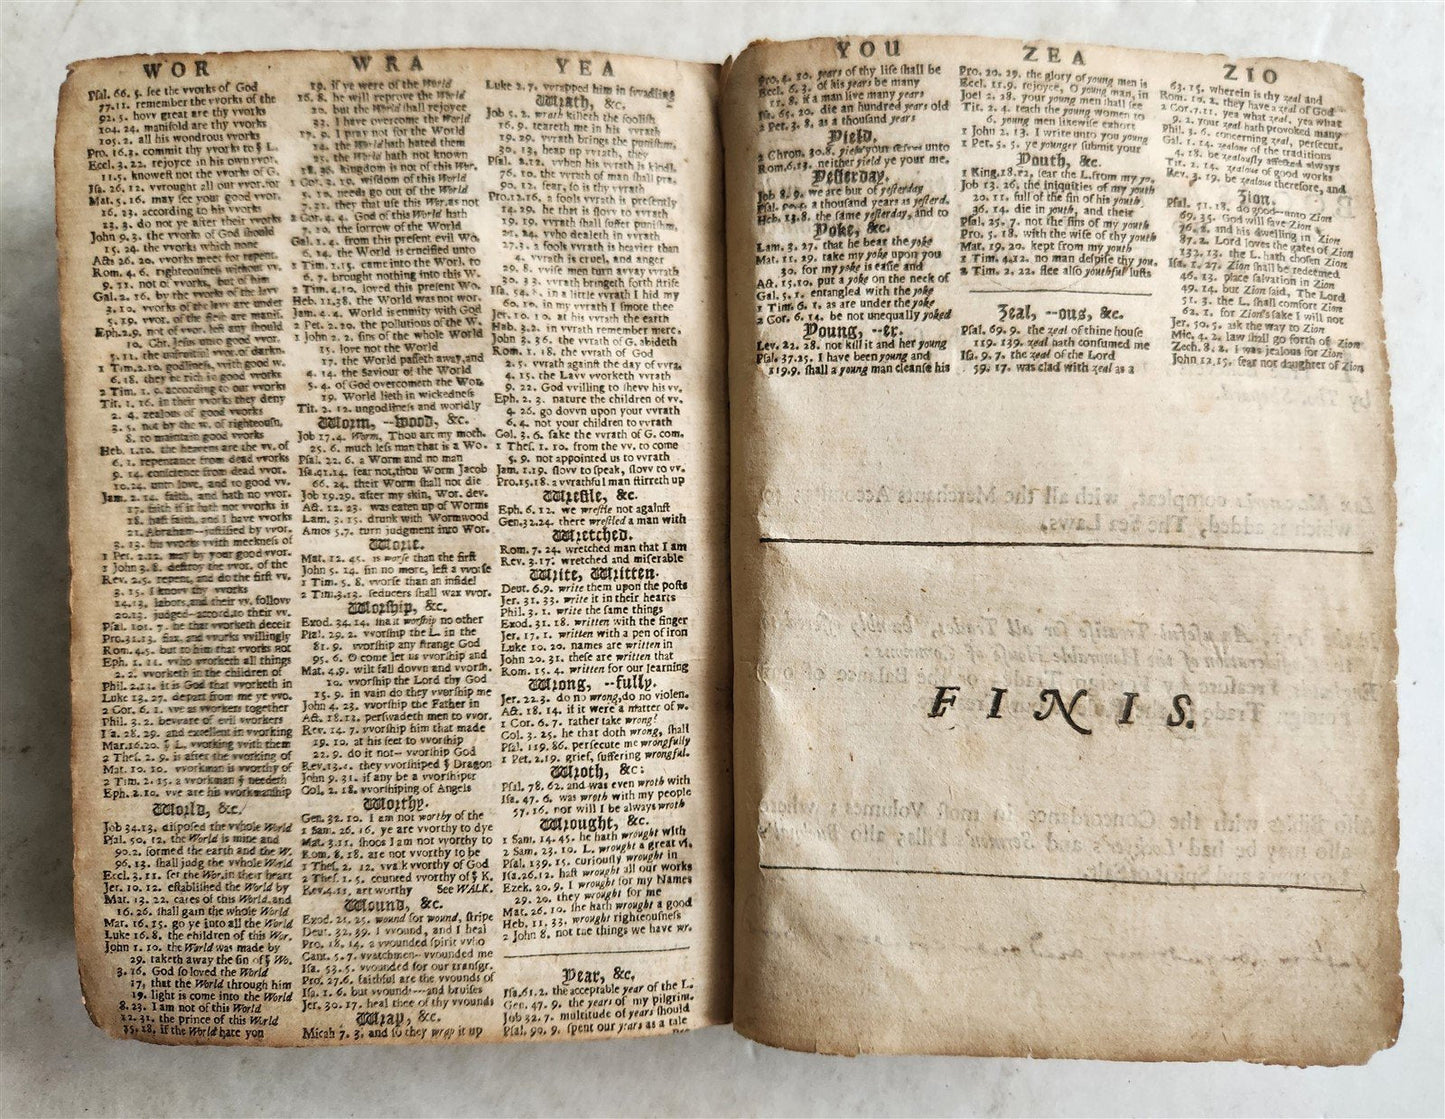 WOR
Psal. 66. 5. see the vvorks of God
77.11. remember the vvorks of the
92. 5. hovv great are thy vvorks
104. 24. manifold are thy vvorks
105. 2. all his wondrous vvorks
Pro. 16.3. commit thy vvorks to
Eccl. 3. 22. rejoyce in his own vvor.
11.5. knowest not the vvorks of G.
Isa. 26. 12. vvrought all our vvor. for
Mat. 5. 16. may see your good vvor.
16. 23. according to his vvorks
23. 3. do not ye after their vvorks
John 9. 3. the vvorks of God should
15. 24. the vvorks which none
Acts 26. 20. vvorks meet for repent.
Rom. 4. 6. righteousness without vv.
9. 11. not of vvorks, but of him
Gal. 2. 16. by the vvorks of the lavv
3. 10. vvorks of the lavv are under
5. 19. vvor. of the flesh are manif.
Eph.2.9. not of vvor. lest any should
10. Chr. Jesus unto good vvor.
5. 11. the unfruitful vvor. of darkn.
1 Tim.2.10. godliness, with good w.
6. 18. they be rich in good vvorks
2 Tim. 1. 9. according to our vvorks
Tit. 1. 16. in their vvorks they deny
2. 4. zealous of good vvorks
3. 5. not by the w. of righteousn.
8. to maintain good vvorks
Heb. 1.10. the heavens are the vv. of
6. 1. repentance from dead vvorks
9. 14. conscience from dead vvor.
10.24. unto love, and to good vv.
Jam. 2. 14. faith, and hath no vvor.
17. faith if it hath not vvorks is
18. hast faith, and I have vvorks
21. Abraham--justified by vvor.
3. 13. his vvorks with meekness of
1 Pet. 2.12. may by your good vvor.
1 John 3. 8. destroy the vvor. of the
Rev. 2.5. repent, and do the first vv.
3. 15. I know thy vvorks
14.13. labors, and their vv. follovv
20.13. judged--accord. to their vv.
Psal. 101. 7. he that vvorketh deceit
Pro.31.13. flax, and vvorks vvillingly
Rom. 4.5. but to him that vvorks not
Eph. 1. 11. vvho vvorketh all things
2. 2. vvorketh in the children of
Phil. 2.13. it is God that vvorketh in
Luke 13. 27. depart from me ye vvo.
2 Cor. 6. 1. vve as vvorkers together
Phil. 3. 2. beware of evil vvorkers
Isa. 28. 29. and excellent in vvorking
Mar.16.20. L. vvorking with them
2 Thes. 2. 9. is after the vvorking of
Mat. 10. 10. vvorkman is vvorthy of
2 Tim. 2. 15. a vvorkman needeth
Eph. 2.10. vve are his vvorkmanship
World, &c.
Job 34.13. disposed the vvhole World
Psal. 50. 12. the World is mine and
90.2. formed the earth and the W.
96. 13. shall judg the vvhole World
Eccl. 3.11. set the Wor. in their heart
Jer. 10. 12. established the World by
Mat. 13. 22. cares of this World, and
16. 26. shall gain the whole World
Mar. 16. 15. go ye into all the World
Luke 16. 8. the children of this Wor.
John 1. 10. the World was made by
29. taketh away the sin of Wo.
3. 16. God so loved the World
17, that the World through him
19. light is come into the World
8. 23. I am not of this World
12. 31. the prince of this World
15. 18. if the World hate you
WRA
19. if ye were of the World
16. 8. he will reprove the World
20. but the World shall rejoyce
33. I have overcome the World
17. 9. I pray not for the World
14. the World hath hated them
25. the World hath not known
18. 36. kingdom is not of this Wor.
1 Cor. 2. 19. wisdom of this World
5. 10. needs go out of the World
7. 31. they that use this Wor. as not
2 Cor. 4. 4. God of this World hath
7. 10. the sorrow of the World
Gal. 1. 4. from this present evil Wo.
6. 14. the World is crucified unto
1 Tim. 1. 15. came into the Worl. to
6. 7. brought nothing into this W.
2 Tim. 4.10. loved this present Wo.
Heb. 11.38. the World was not wor.
Jam. 4. 4. World is enmity with God
2 Pet. 2. 20. the pollutions of the W.
1 John 2. 2. sins of the whole World
15. love not the World
17. the World passeth away, and
4. 14. the Saviour of the World
5. 4. of God overcometh the Wor.
19. World lieth in wickedness
Tit. 2. 12. ungodliness and worldly
Worm, --wood, &c.
Job 17.4. Worm, Thou art my moth.
25. 6. much less man that is a Wo.
Psal. 22. 6. a Worm and no man
Isa.41.14. fear not, thou Worm Jacob
66. 24. their Worm shall not die
Job 19.29. after my skin, Wor. dev.
Act. 12. 23. was eaten up of Worms
Lam. 3. 15. drunk with Wormwood
Amos 5.7. turn judgment into Wor.
Worse.
Mat. 12. 45. is worse than the first
John 5. 14. sin no more, lest a vvorse
1 Tim. 5. 8. vvorse than an infidel
2 Tim.3.13. seducers shall wax vvor.
Worship, &c.
Exod. 34. 14. shalt worship no other
Psal. 29. 2. vvorship the L. in the
81. 9. vvorship any strange God
95. 6. O come let us vvorship and
Mat. 4.9. wilt fall dovvn and vvorsh.
10. vvorship the Lord thy God
15. 9. in vain do they vvorship me
John 4. 23. vvorship the Father in
Act. 18.13. persvvadeth men to vvor.
Rev. 14. 7. vvorship him that made
19. 10. at his feet to vvorship
22. 9. do it not-- vvorship God
Rev.13.4. they vvorshiped Dragon
John 9. 31. if any be a vvorshiper
Col. 2. 18. vvorshiping of Angels
Worthy.
Gen. 32. 10. I am not worthy of the
1 Sam. 26. 16. ye are vvorthy to dye
Mat. 3.11. shoos I am not vvorthy to
Rom. 8. 18. are not vvorthy to be
1 Thes. 2. 12. walk vvorthy of God
2 Thes. 1. 5. counted vvorthy of K.
Rev.4.11. art worthy See WALK.
Wound, &c.
Exod. 21. 25. wound for wound, stripe
Deut. 32. 39. I vvound, and I heal
Pro. 18. 14. a vvounded spirit vvho
Cant. 5. 7. vvatchmen--vvounded me
Isa. 53. 5. vvounded for our transgr.
Pro. 27.6. faithful are the vvounds of
Isa. 1. 6. but vvounds--and bruises
Jer. 30. 17. heal thee of thy vvounds
Wrap, &c.
Micah 7. 3. and so they wrap it up
YEA
Luke 2. 7. vvrapped him in svvadling
Wrath, &c.
Job 5. 2. wrath killeth the foolish
16. 9. teareth me in his vvrath
19. 29. vvrath brings the punishm.
30. 13. heap up vvrath, they
Psal. 2.12. vvhen his vvrath is kindl.
76. 10. the vvrath of man shall pra.
90. 12. fear, so is thy vvrath
Pro.12.16. a fools vvrath is presently
14. 29. he that is slovv to vvrath
19. 19. vvrath shall suffer punishm.
21. 24. vvho dealeth in vvrath
27.3. a fools vvrath is heavier than
4. vvrath is cruel, and anger
29. 8. vvise men turn avvay vvrath
30. 33. vvrath bringeth forth strife
Isa. 54. 8. in a little vvrath I hid my
60. 10. in my vvrath I smote thee
Jer. 10. 10. at his vvrath the earth
Hab. 3.2. in vvrath remember merc.
John 3. 36. the vvrath of G. abideth
Rom. 1. 18. the vvrath of God
2. 5. vvrath against the day of vvra.
4. 15. the Lavv vvorketh vvrath
9. 22. God vvilling to shevv his vv.
Eph. 2. 3. nature the children of vv.
4. 26. go dovvn upon your vvrath
6. 4. not your children to vvrath
Col. 3. 6. sake the vvrath of G. com.
1 Thes. 1. 10. from the vv. to come
5. 9. not appointed us to vvrath
Jam. 1.19. slovv to speak, slovv to vv.
Pro.15.18. a vvrathful man stirreth up
Wrestle, &c.
Eph. 6. 12. we wrestle not against
Gen.32.24. there wrestled a man with
Wretched.
Rom. 7. 24. wretched man that I am
Rev. 3.17. wretched and miserable
Write, Written.
Deut. 6.9. write them upon the posts
Jer. 31. 33. write it in their hearts
Phil. 3. 1. write the same things
Exod. 31. 18. written with the finger
Jer. 17. 1. written with a pen of iron
Luke 10. 20. names are written in
John 20. 31. these are written that
Rom. 15. 4. written for our learning
Wrong, --fully.
Jer. 22.3. do no wrong, do no violen.
Act. 18. 14. if it were a matter of w.
1 Cor. 6. 7. rather take wrong?
Col. 3. 25. he that doth wrong, shall
Psal. 119. 86. persecute me wrongfully
1 Pet. 2.19. grief, suffering wrongful.
Wroth, &c.
Psal. 78. 62. and was even wroth with
Isa. 47. 6. was wroth with my people
57. 16. nor will I be always wroth
Wrought, &c.
1 Sam. 14. 45. he hath wrought with
2 Sam. 23. 10. L. wrought a great vi.
Psal. 139. 15. curiously wrought in
Isa.26.12. hast wrought all our works
Ezek. 20. 9. I wrought for my Names
29. 20. they wrought for me
Mat. 26. 10. she hath wrought a good
Heb. 11. 33. wrought righteousness
2 John 8. not the things we have wr.
Year, &c.
Isa.61.2. the acceptable year of the L.
Gen. 47. 9. the years of my pilgrim.
Job 32. 7. multitude of years should
Psal. 90. 9. spent our years as a tale
YOU
Pro. 4. 10. years of thy life shall be
Eccl. 6. 3. of his years be many
11. 8. if a man live many years
Isa. 65. 20. die an hundred years old
2 Pet. 3. 8. as a thousand years
Yield.
2 Chron. 30.8. yield your selves unto
Rom.6.13. neither yield ye your me.
Yesterday.
Job 8. 9. we are but of yesterday
Psal. 90.4. a thousand years as yesterd.
Heb. 13.8. the same yesterday, and to
Yoke, &c.
Lam. 3. 27. that he bear the yoke
Mat. 11. 29. take my yoke upon you
30. for my yoke is easie and
Act. 15.10. put a yoke on the neck of
Gal. 5. 1. entangled with the yoke
1 Tim. 6. 1. as are under the yoke
2 Cor. 6. 14. be not unequally yoked
Young, --er.
Lev. 22. 28. not kill it and her young
Psal. 37.25. I have been young and
119.9. shall a young man cleanse his
ZEA
Pro. 20. 29. the glory of young men is
Eccl. 11.9. rejoyce, O young man, in
Joel 2. 28. your young men shall see
Tit. 2. 4. teach the young women to
6. young men likewise exhort
1 John 2. 13. I write unto you young
1 Pet. 5. 5. ye younger submit your
Youth, &c.
1 King.18.12, fear the L. from my yo.
Job 13. 26. the iniquities of my youth
20. 11. full of the sin of his youth
36. 14. die in youth, and their
Psal. 25. 7. not the sins of my youth
Pro. 5. 18. with the wife of thy youth
Mat. 19. 20. kept from my youth
1 Tim. 4.12. no man despise thy you.
2 Tim. 2. 22. flee also youthful lusts
Zeal, --ous, &c.
Psal. 69. 9. the zeal of thine house
119. 139. zeal hath consumed me
Isa. 9. 7. the zeal of the Lord
59. 17. was clad with zeal as a
ZIO
63. 15. wherein is thy zeal and
Rom. 10. 2. they have a zeal of God
2 Cor.7.11. yea what zeal, yea what
9. 2. your zeal hath provoked many
Phil. 3. 6. concerning zeal, persecut.
Gal. 1. 14. zealous of the traditions
4. 18. be zealously affected always
Tit. 2. 14. zealous of good works
Rev. 3. 19. be zealous therefore, and
Zion.
Psal. 51. 18. do good--unto Zion
69. 35. God will save Zion
76. 2. and his dwelling in Zion
87. 2. Lord loves the gates of Zion
132. 13. the L. hath chosen Zion
Isa. 1. 27. Zion shall be redeemed
46. 13. place salvation in Zion
49. 14. but Zion said, The Lord
51. 3. the L. shall comfort Zion
62. 1. for Zion's sake I will not
Jer. 50. 5. ask the way to Zion
Mic. 4. 2. law shall go forth of Zion
Zech. 8. 2. I was jealous for Zion
John 12.15. fear not daughter of Zion
FINIS.